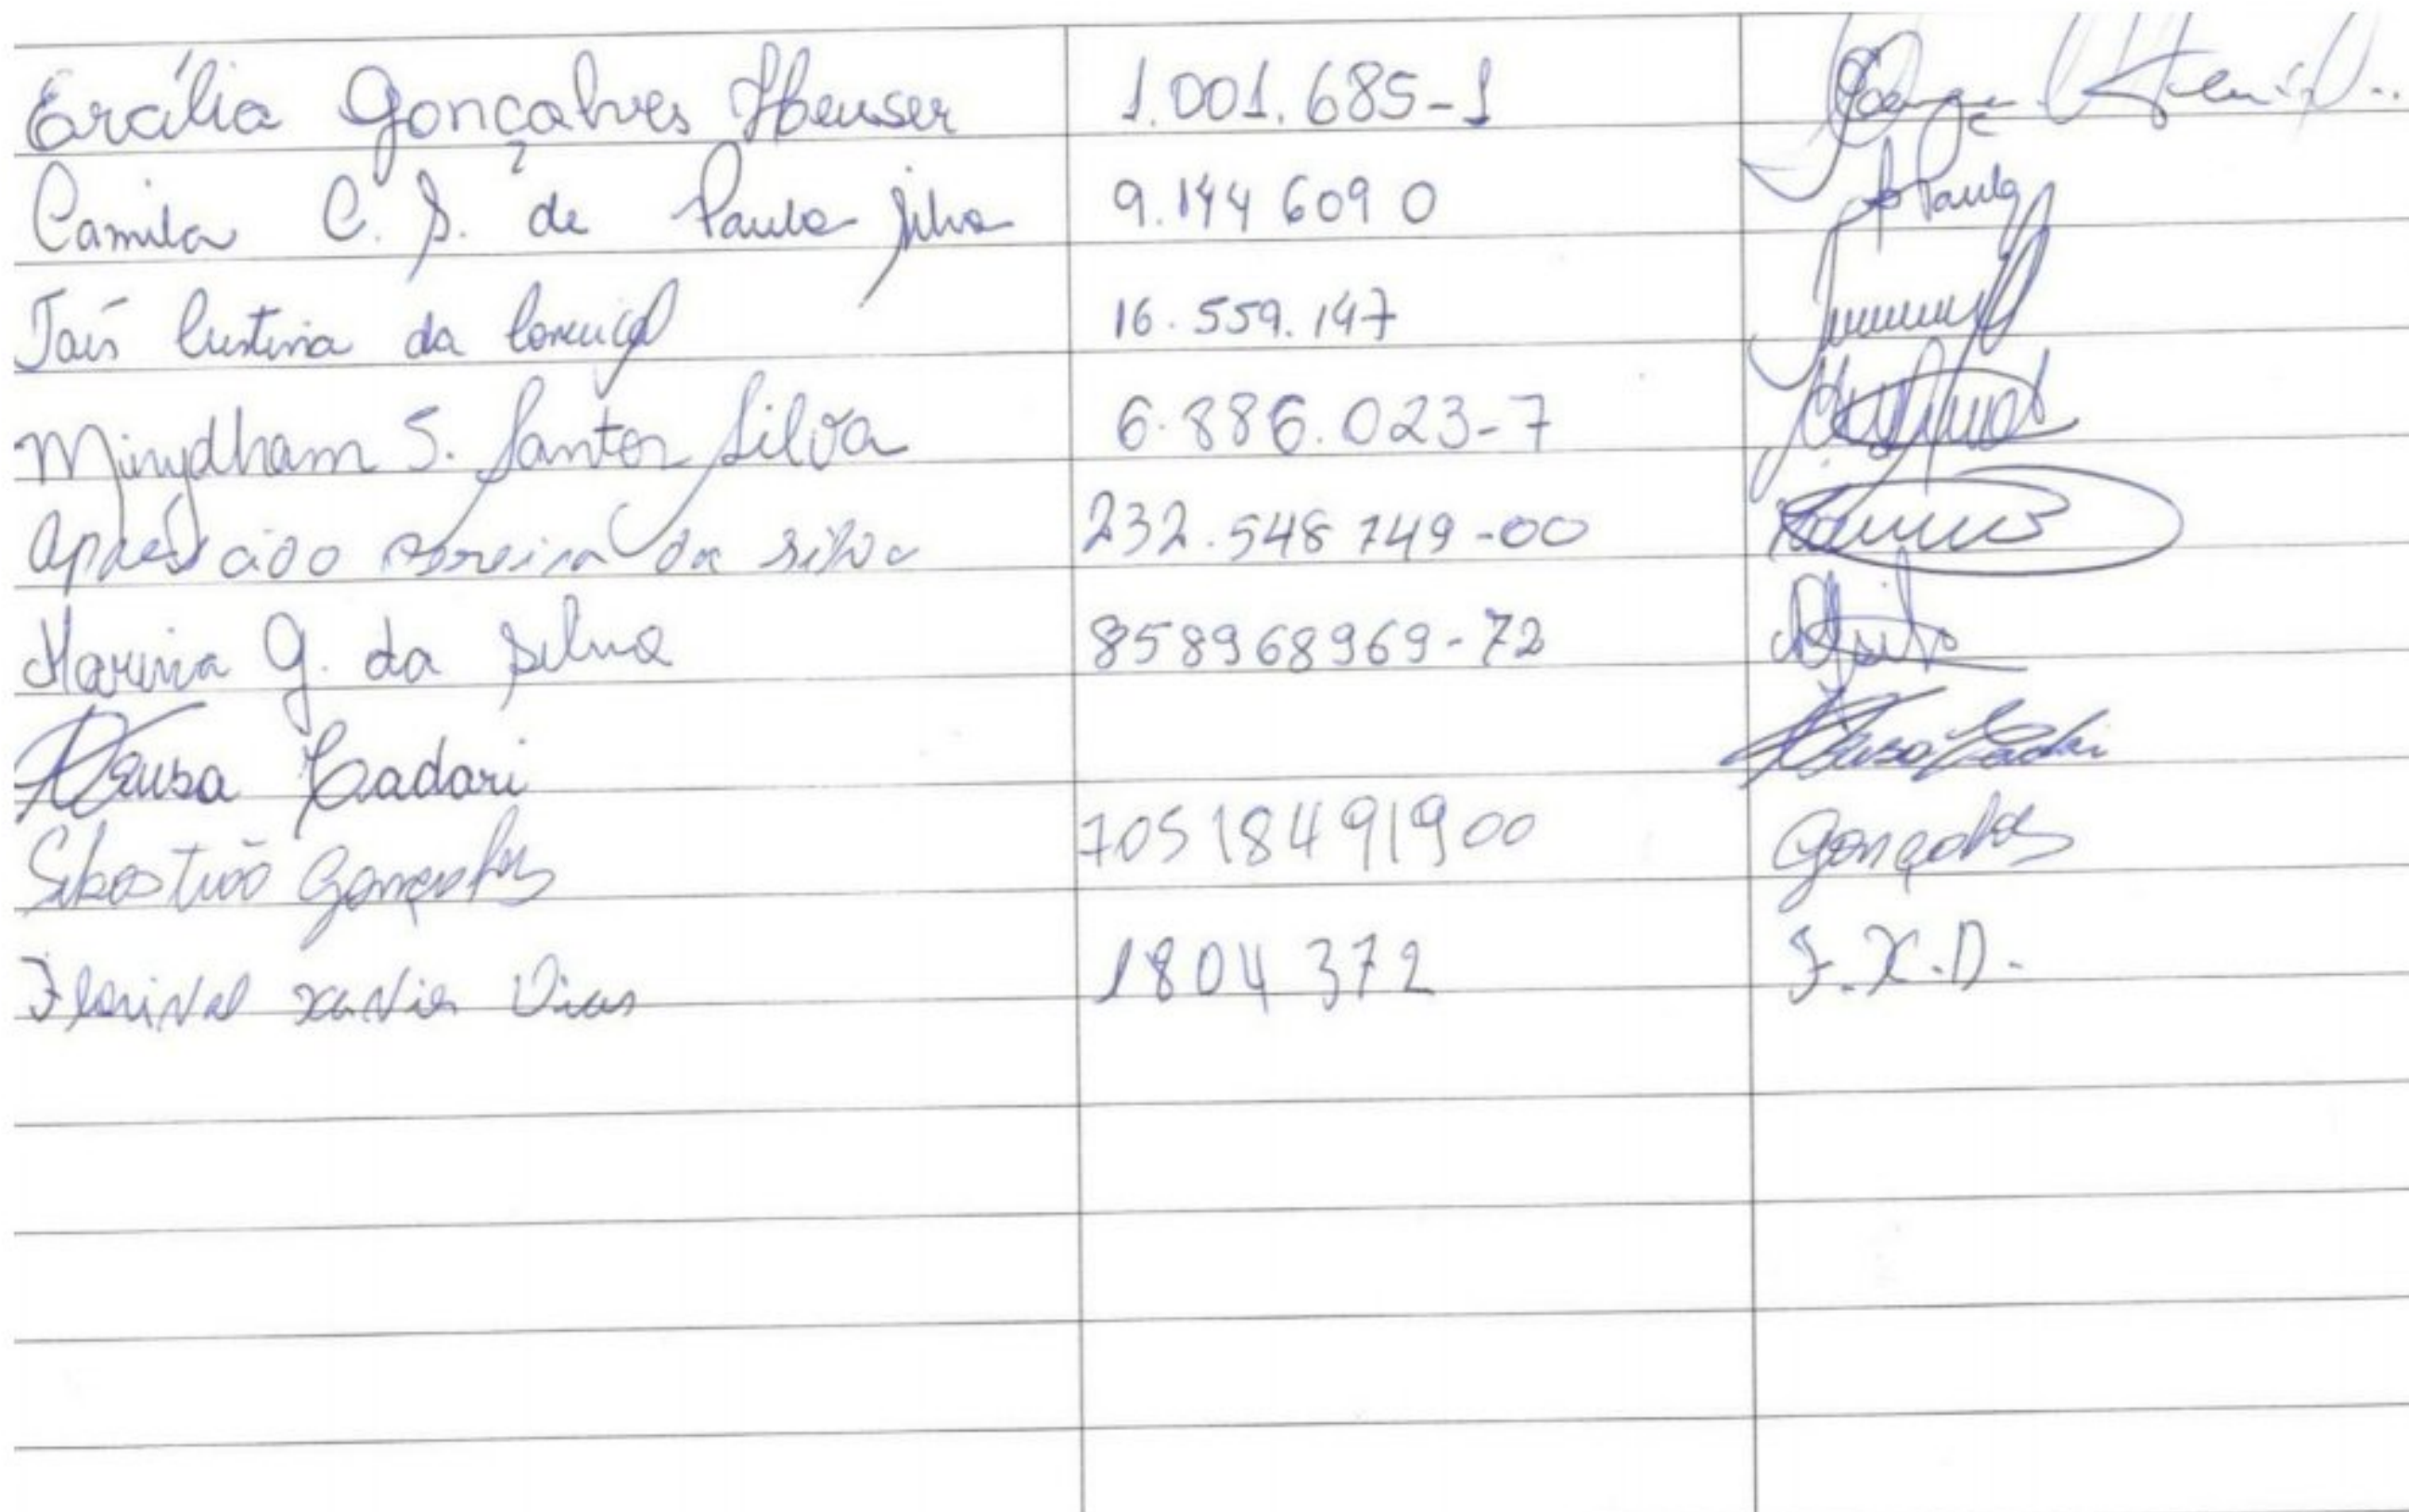 Ercília Gonçalves Heuser 1.001.685-1
Camila C. S. de Paula Silva 9.144 609 0 Paula
Taís Cristina da 16.559.147
Mirydham S. Santos Silva 6.886.023-7
Aparecido Pereira da Silva 232.548 749-00
Marina G. da Silva 858968969-72
Neusa Cadari Neusa Cadari
Sebastião Gonçalves 70518491900 Gonçalves
Florival xavier Dias 1804372 F.X.D.